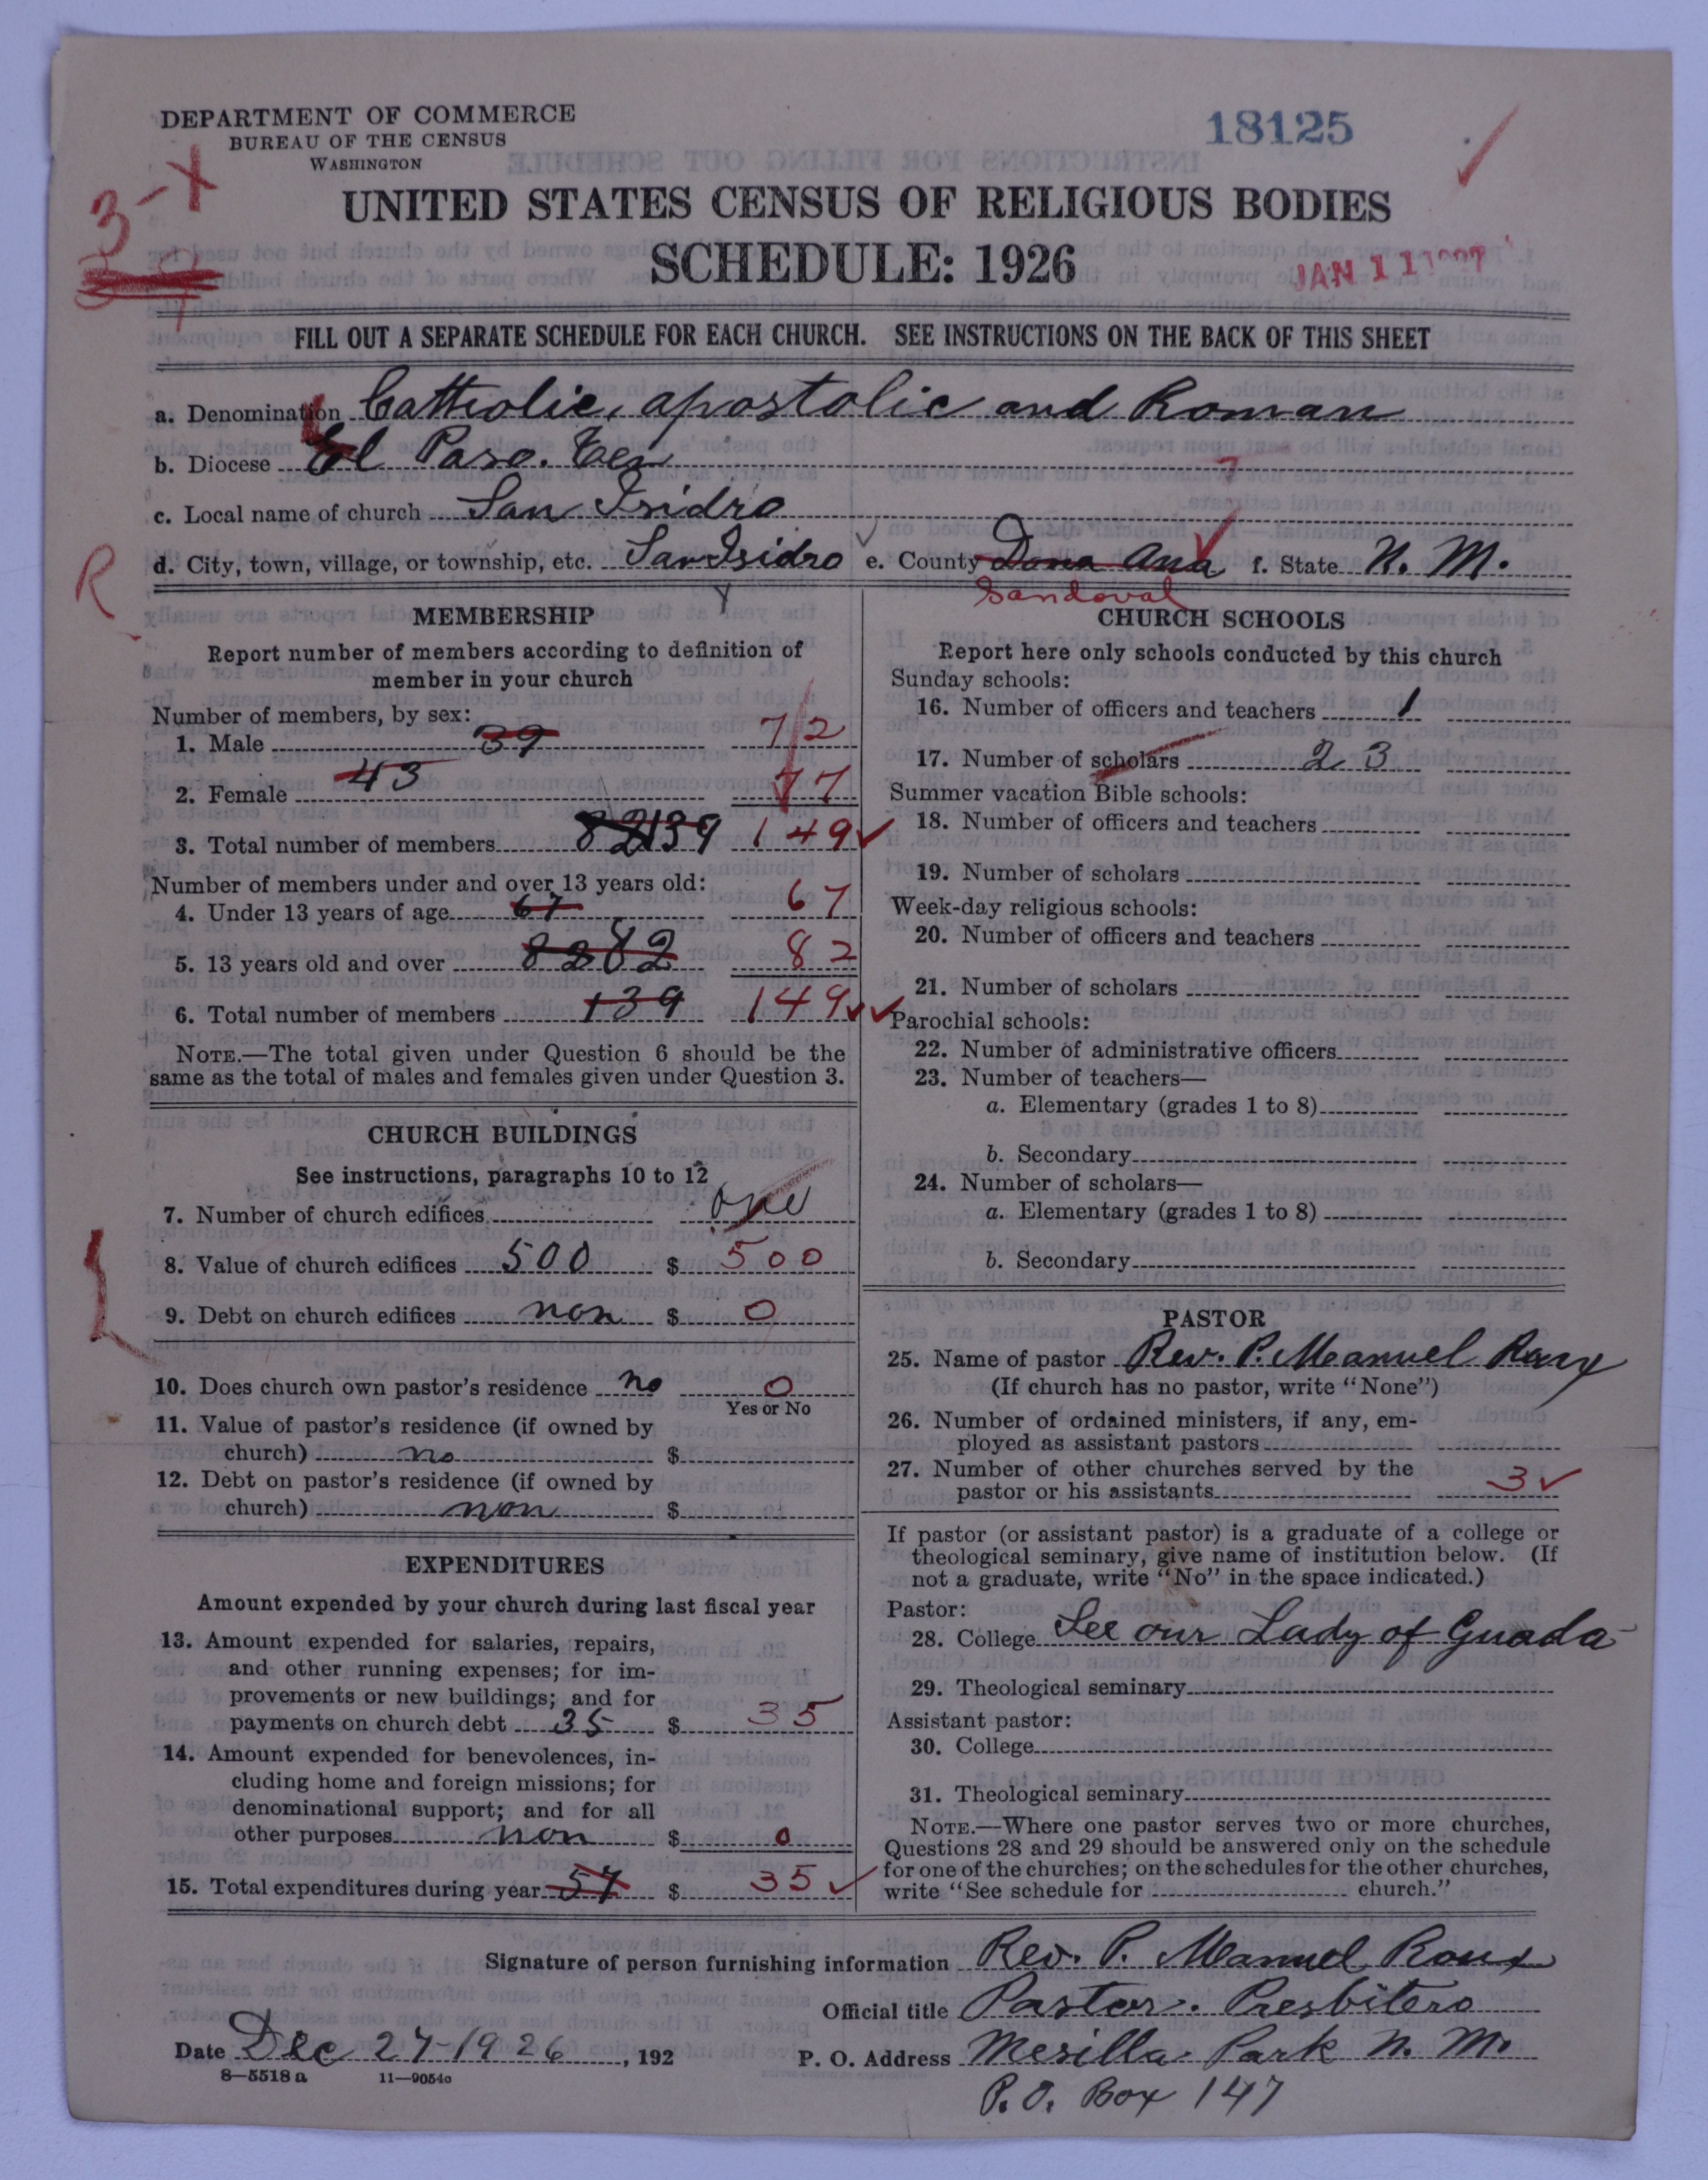 DEPARTMENT OF COMMERCE
BUREAU OF THE CENSUS
WASHINGTON
18125
3-X
UNITED STATES CENSUS OF RELIGIOUS BODIES
SCHEDULE: 1926
JAN 11 1927
FILL OUT A SEPARATE SCHEDULE FOR EACH CHURCH. SEE INSTRUCTIONS ON THE BACK OF THIS SHEET
a. Denomination Catholic, apostolic and Roman
b. Diocese El Paso. Tex
c. Local name of church San Isidro
d. City, town, village, or township, etc. San Isidro e. County Dona Ana f. State N. M.
Sandoval
R
MEMBERSHIP
Report number of members according to definition of
member in your church
Number of members, by sex:
1. Male 39 72
2. Female 43 77
3. Total number of members 82 139 149
Number of members under and over 13 years old:
4. Under 13 years of age 67 67
5. 13 years old and over 82 82 82
6. Total number of members 139 149
NOTE.—The total given under Question 6 should be the
same as the total of males and females given under Question 3.
CHURCH BUILDINGS
See instructions, paragraphs 10 to 12
7. Number of church edifices one
8. Value of church edifices 500 $ 500
9. Debt on church edifices non $ 0
10. Does church own pastor's residence no 0
Yes or No
11. Value of pastor's residence (if owned by
church) no $
12. Debt on pastor's residence (if owned by
church) non $
EXPENDITURES
Amount expended by your church during last fiscal year
13. Amount expended for salaries, repairs,
and other running expenses; for im-
provements or new buildings; and for
payments on church debt 35 $ 35
14. Amount expended for benevolences, in-
cluding home and foreign missions; for
denominational support; and for all
other purposes non $ 0
15. Total expenditures during year 57 $ 35
CHURCH SCHOOLS
Report here only schools conducted by this church
Sunday schools:
16. Number of officers and teachers 1
17. Number of scholars 23
Summer vacation Bible schools:
18. Number of officers and teachers
19. Number of scholars
Week-day religious schools:
20. Number of officers and teachers
21. Number of scholars
Parochial schools:
22. Number of administrative officers
23. Number of teachers—
a. Elementary (grades 1 to 8)
b. Secondary
24. Number of scholars—
a. Elementary (grades 1 to 8)
b. Secondary
PASTOR
25. Name of pastor Rev. P. Manuel Roux
(If church has no pastor, write "None")
26. Number of ordained ministers, if any, em-
ployed as assistant pastors
27. Number of other churches served by the
pastor or his assistants 3
If pastor (or assistant pastor) is a graduate of a college or
theological seminary, give name of institution below. (If
not a graduate, write "No" in the space indicated.)
Pastor:
28. College See our Lady of Guada
29. Theological seminary
Assistant pastor:
30. College
31. Theological seminary
NOTE.—Where one pastor serves two or more churches,
Questions 28 and 29 should be answered only on the schedule
for one of the churches; on the schedules for the other churches,
write "See schedule for church."
Signature of person furnishing information Rev. P. Manuel Roux
Official title Pastor. Presbitero
Date Dec 27-1926, 192 P. O. Address Mesilla Park N. M.
8—5518 a 11—9054c
P. O. Box 147